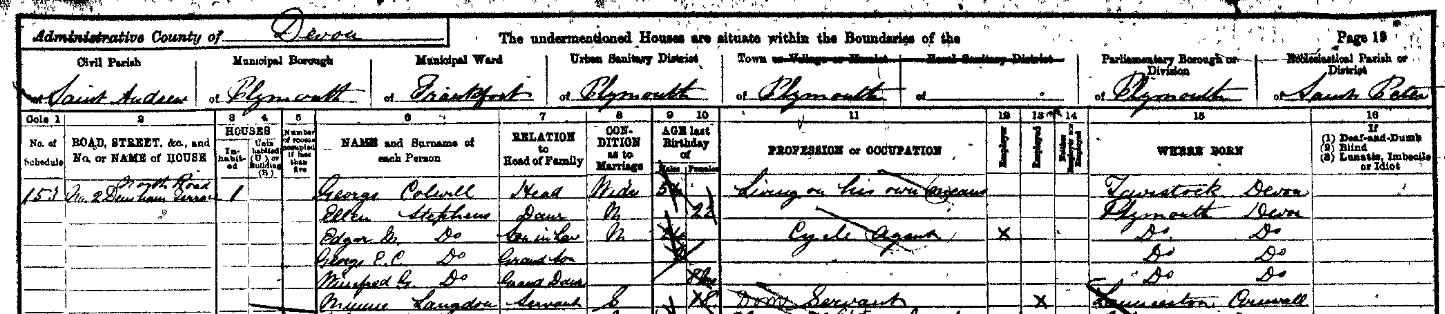 Administrative County of Devon The undermentioned Houses are situate within the Boundaries of the Page 19
Civil Parish Municipal Borough Municipal Ward Urban Sanitary District Town or Village or Hamlet Rural Sanitary District Parliamentary Borough or Division Ecclesiastical Parish or District
of Saint Andrew of Plymouth of Frankfort of Plymouth of Plymouth of of Plymouth of Saint Peter
Cols 1 2 3 4 5 6 7 8 9 10 11 12 13 14 15 16
No. of Schedule ROAD, STREET, &c., and No. or NAME of HOUSE HOUSES Inhabited Uninhabited (U.) or Building (B.) Number of rooms occupied if less than five NAME and Surname of each Person RELATION to Head of Family CONDITION as to Marriage AGE last Birthday of Males Females PROFESSION or OCCUPATION Employer Employed Neither Employer nor Employed WHERE BORN If (1) Deaf-and-Dumb (2) Blind (3) Lunatic, Imbecile or Idiot
North Road
153 No. 2 Terrace 1 George Colwill Head Widr Living on his own means Tavistock Devon
Ellen Stephens Daur M 22 Plymouth Devon
Edgar M. Do Son in Law M Cycle Agent X Do Do
George E. C. Do Grand Son Do Do
Winifred G. Do Grand Daur Do Do
Minnie Langdon Servant S 18 Dom Servant X Launceston Cornwall